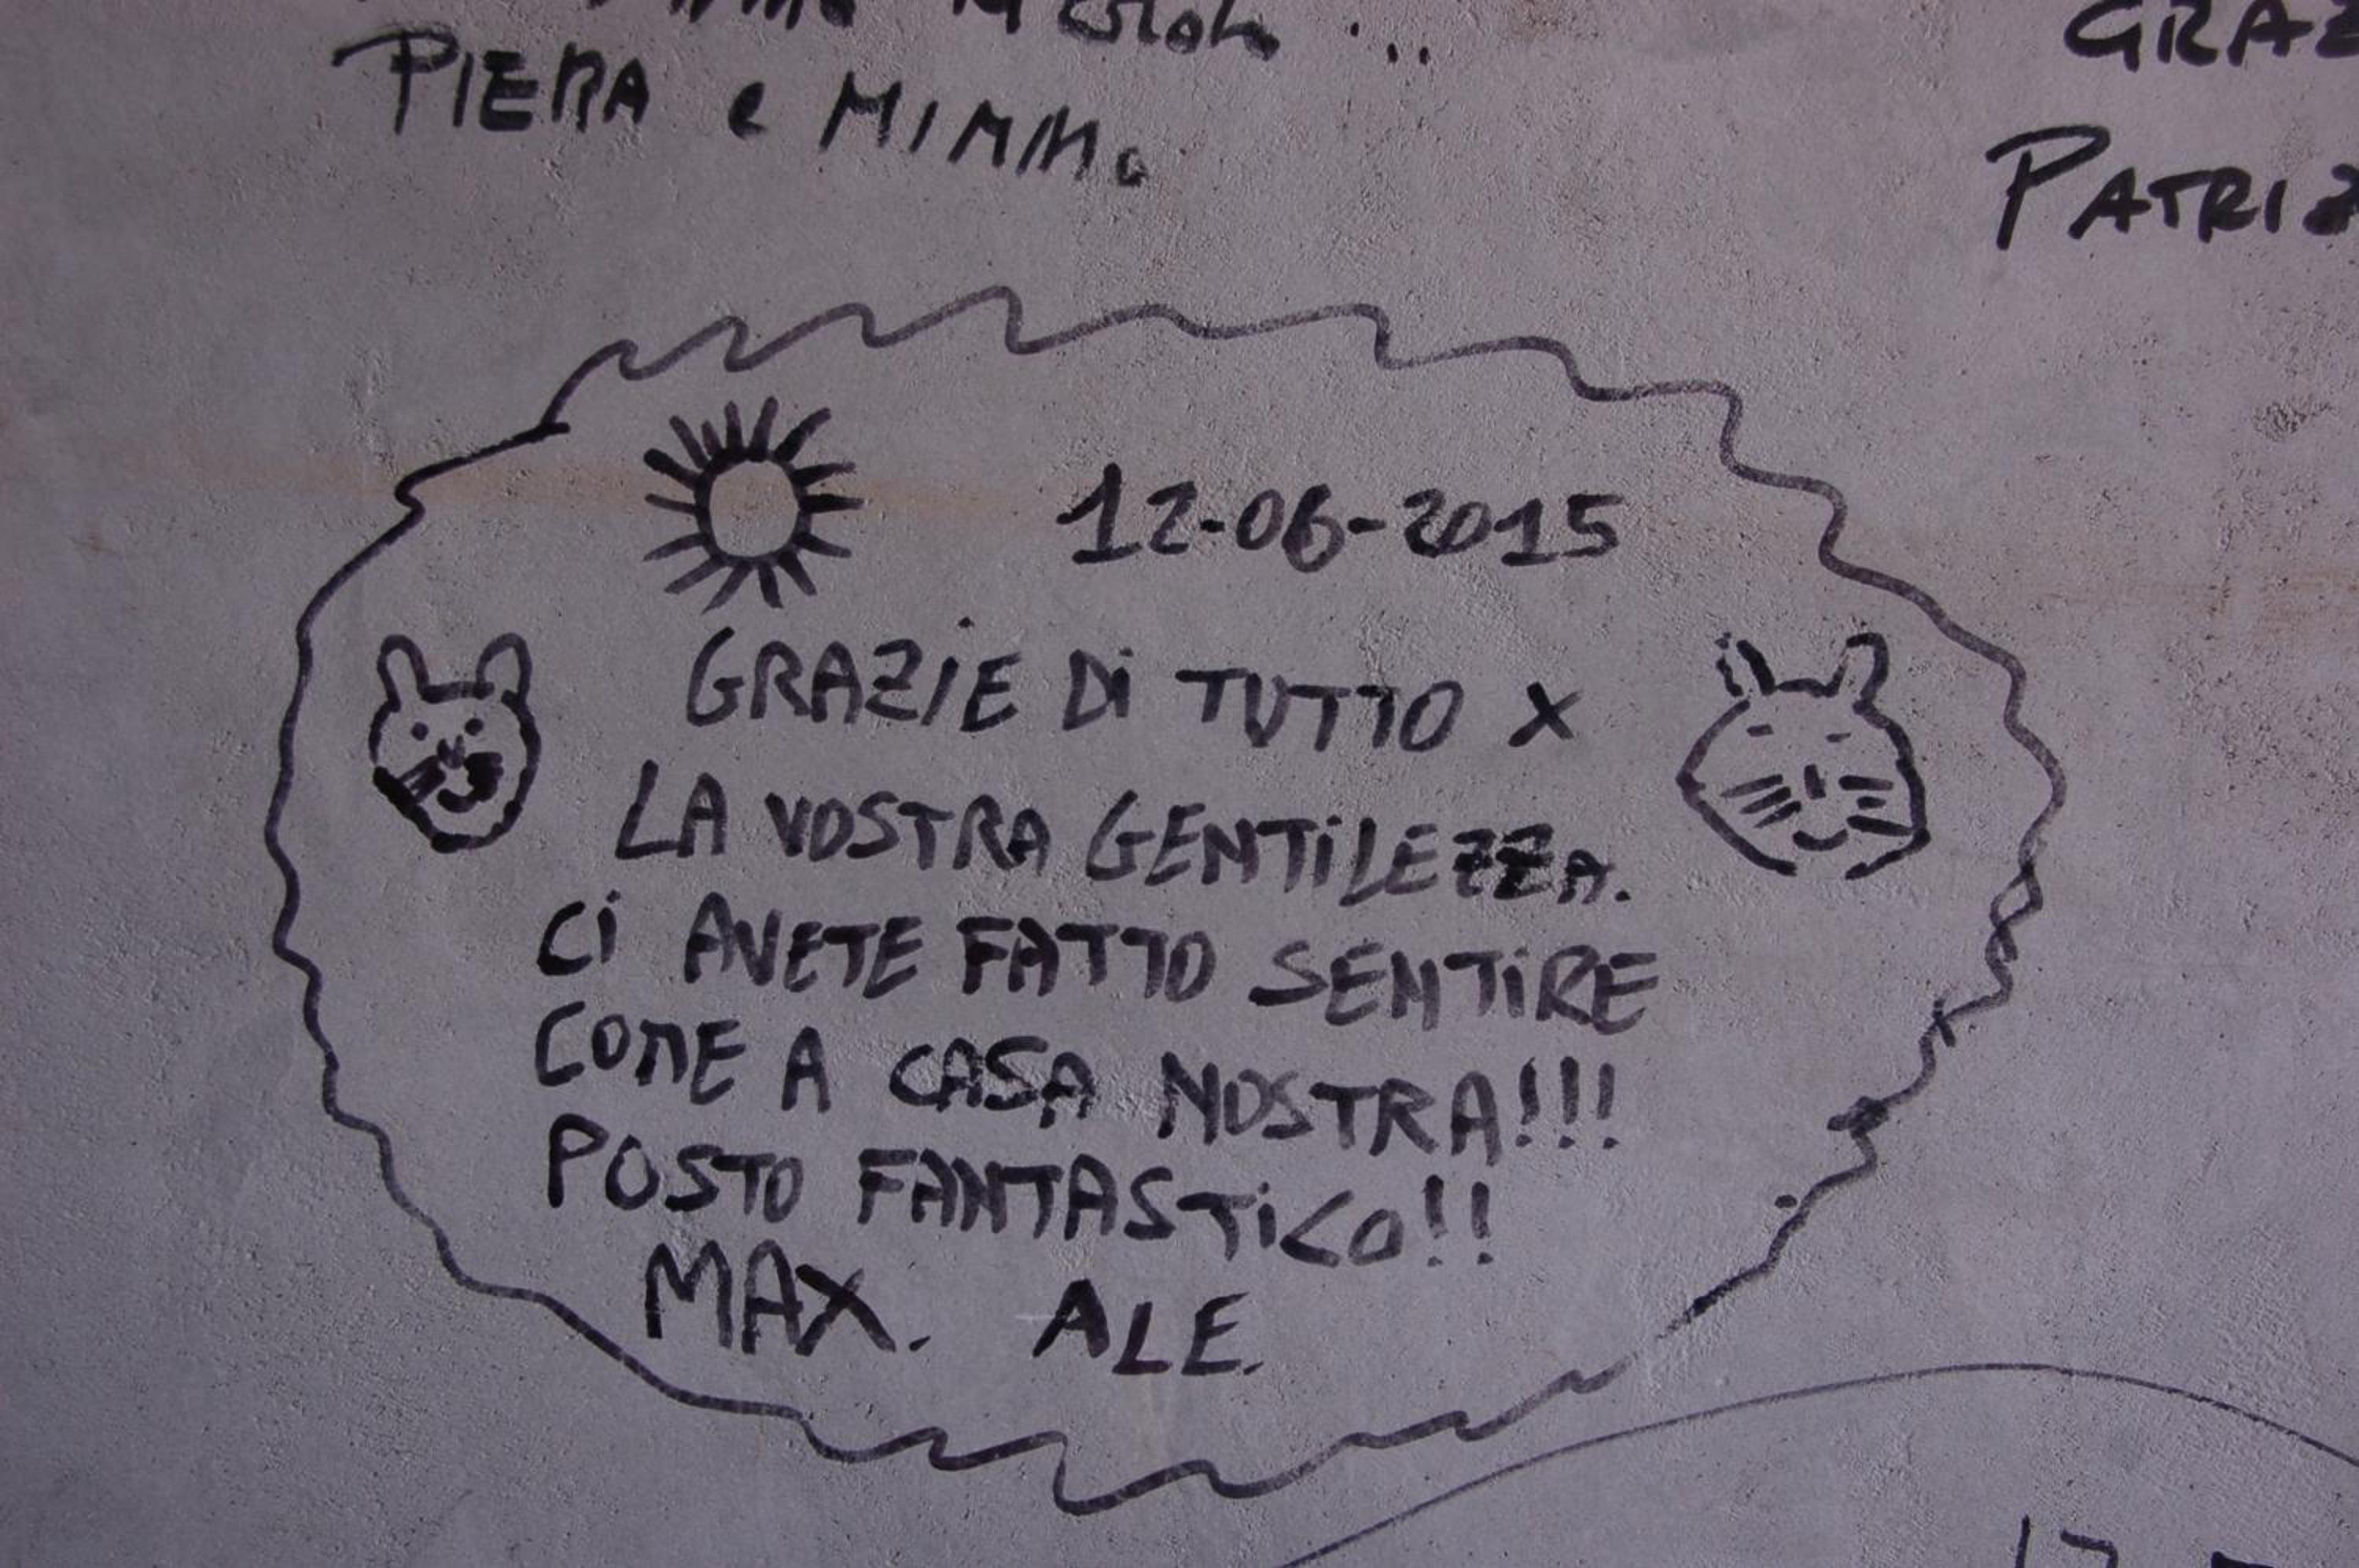 PIERA e MIMMo
GRAZ
PATRIZ
12-06-2015
GRAZIE Di TUTTO X
LA VOSTRA GENTiLEZZA.
Ci AVETE FATTO SENTiRE
COME A CASA NOSTRA!!!
POSTO FANTASTiCO!!
MAX. ALE.